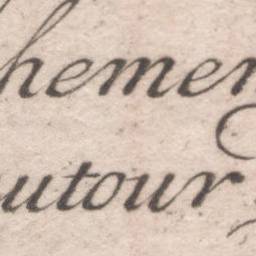 hemen
utour